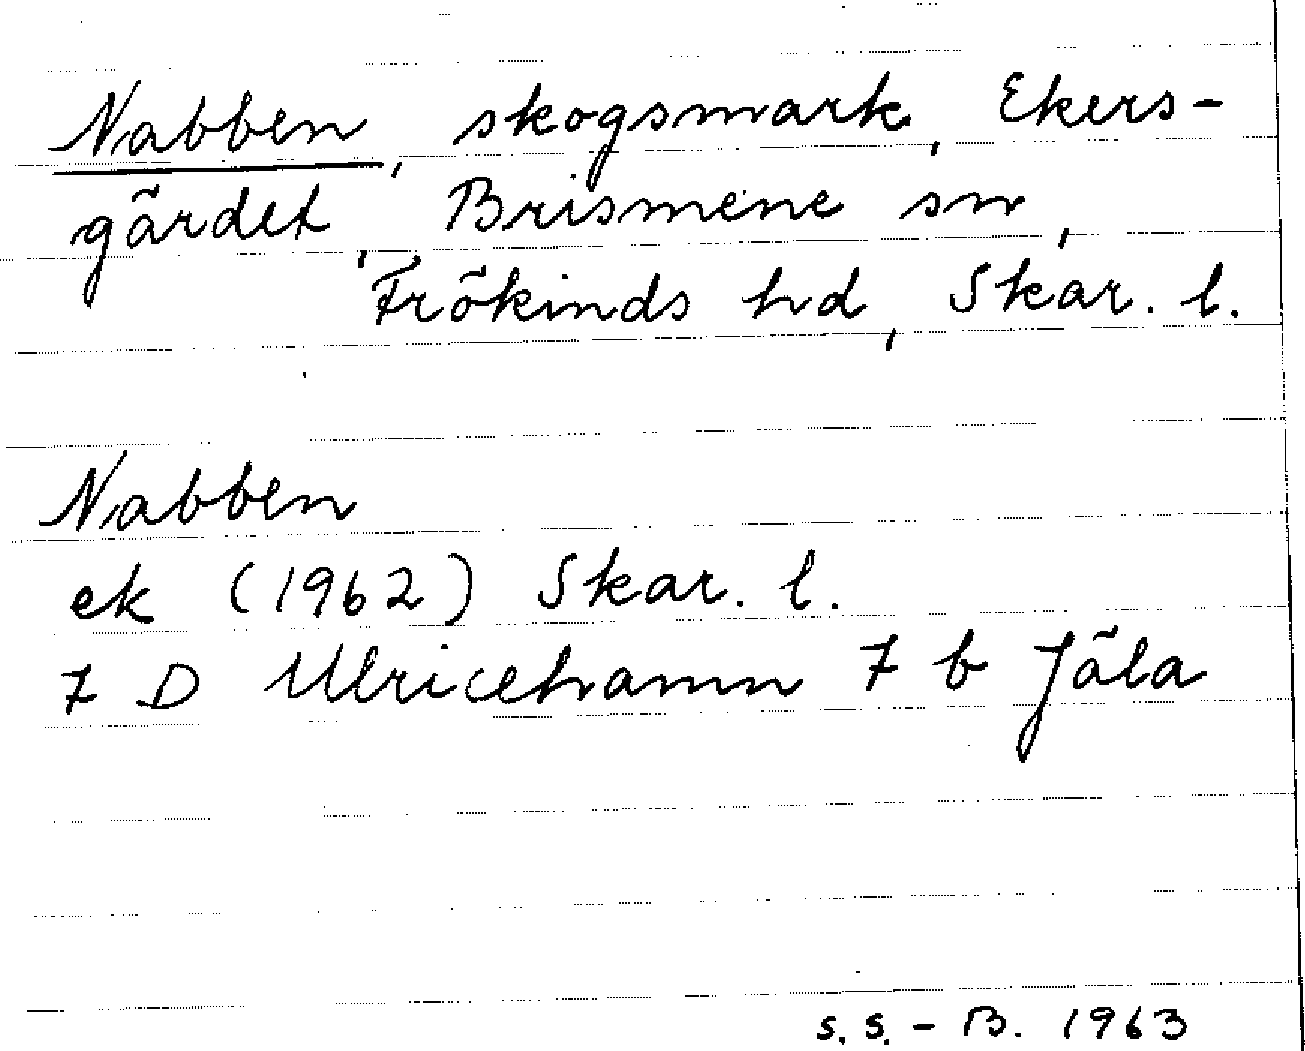 Nabben, skogsmark, Ekers-
gärdet, Brismene sn,
Frökinds hd, Skar. l.
Nabben
ek (1962) Skar. l.
7 D Ulricehamn 7 b Jäla
S. S. - B. 1963